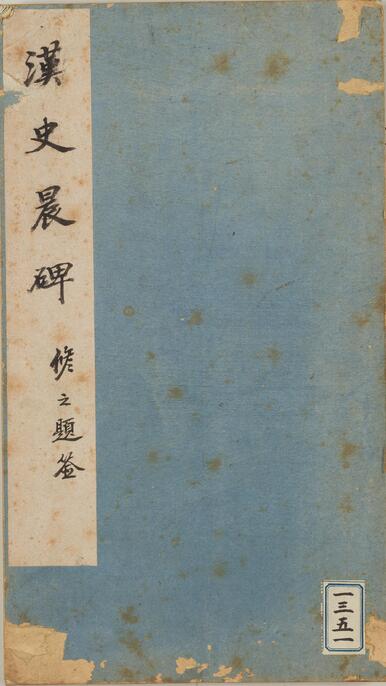 漢史晨碑
脩之題簽
一三五一